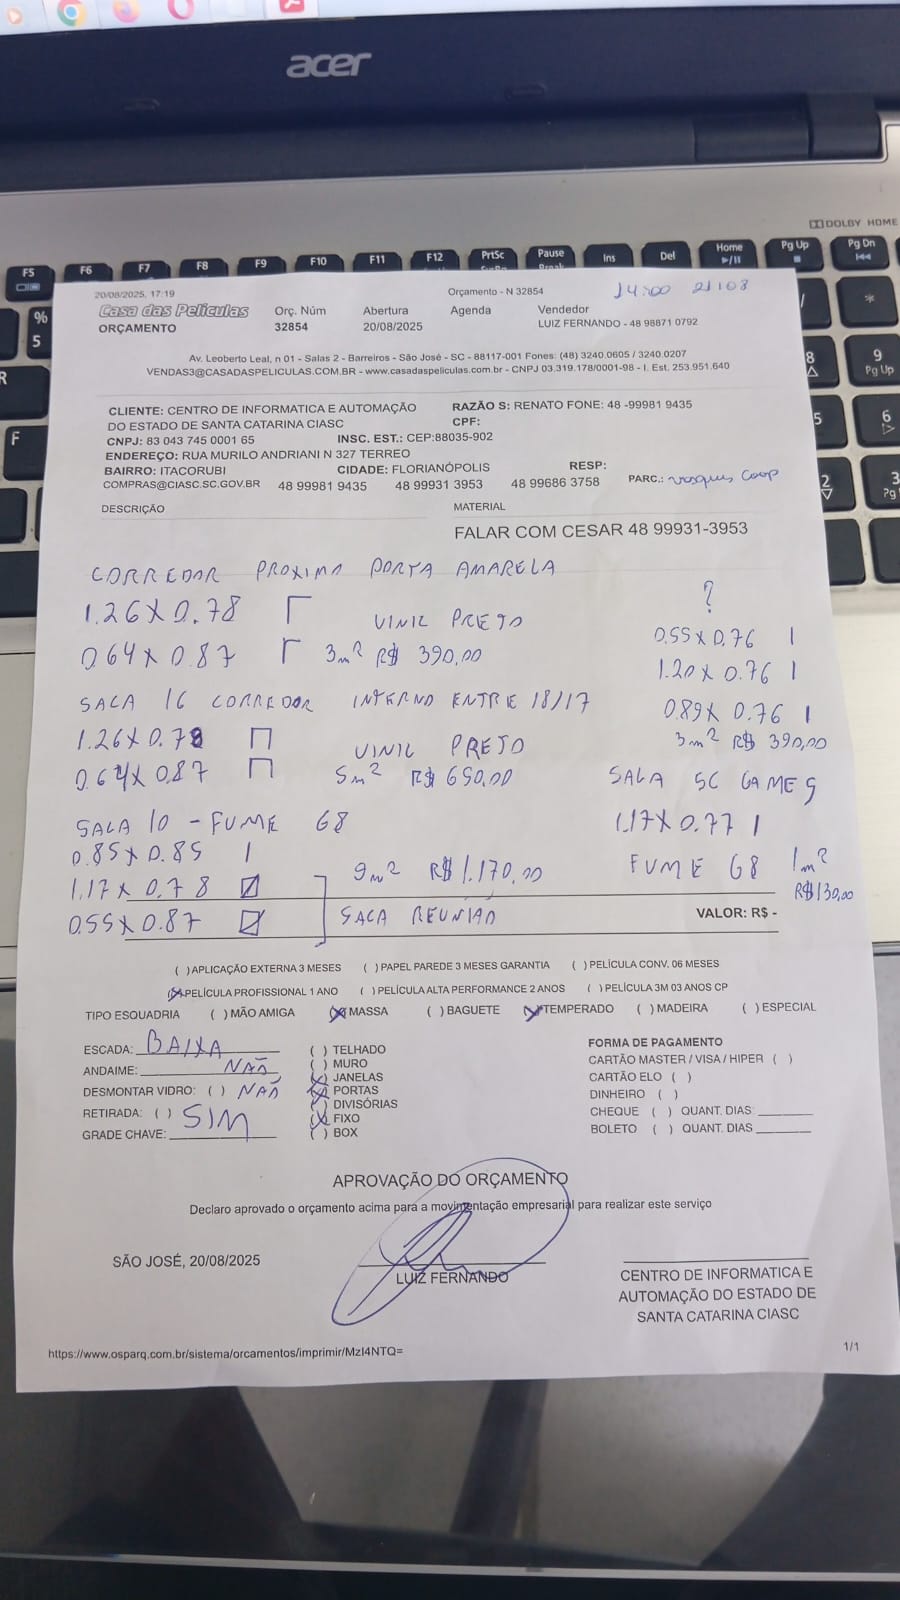 acer
DOLBY HOME
F5 F6 F7 F8 F9 F10 F11 F12 PrtSc Pause Break Ins Del Home Pg Up Pg Dn
20/08/2025, 17:19
Orçamento - N 32854
14:00 21/08
Casa das Películas
ORÇAMENTO
Orç. Núm
32854
Abertura
20/08/2025
Agenda
Vendedor
LUIZ FERNANDO - 48 98871 0792
Av. Leoberto Leal, n 01 - Salas 2 - Barreiros - São José - SC - 88117-001 Fones: (48) 3240.0605 / 3240.0207
VENDAS3@CASADASPELICULAS.COM.BR - www.casadaspeliculas.com.br - CNPJ 03.319.178/0001-98 - I. Est. 253.951.640
CLIENTE: CENTRO DE INFORMATICA E AUTOMAÇÃO DO ESTADO DE SANTA CATARINA CIASC
RAZÃO S: RENATO FONE: 48 -99981 9435
CPF:
CNPJ: 83 043 745 0001 65
INSC. EST.: CEP:88035-902
ENDEREÇO: RUA MURILO ANDRIANI N 327 TERREO
BAIRRO: ITACORUBI
CIDADE: FLORIANÓPOLIS
RESP:
COMPRAS@CIASC.SC.GOV.BR 48 99981 9435 48 99931 3953 48 99686 3758
PARC.: Coop
DESCRIÇÃO
MATERIAL
FALAR COM CESAR 48 99931-3953
CORREDOR PROXIMO PORTA AMARELA
1.26 X 0.78
VINIL PRETO
0.64 X 0.87 3m² R$ 390,00
SALA 16 CORREDOR INTERNO ENTRE 18/17
1.26 X 0.78
VINIL PRETO
0.64 X 0.87 5m² R$ 650,00
SALA 10 - FUME G8
0.85 X 0.85 1
1.17 X 0.78
9m² R$ 1.170,00
0.55 X 0.87
SALA REUNIÃO
?
0.55 X 0.76 1
1.20 X 0.76 1
0.89 X 0.76 1
3m² R$ 390,00
SALA SC GAMES
1.17 X 0.77 1
FUME G8 1m²
R$ 130,00
VALOR: R$ -
( ) APLICAÇÃO EXTERNA 3 MESES ( ) PAPEL PAREDE 3 MESES GARANTIA ( ) PELÍCULA CONV. 06 MESES
(X) PELÍCULA PROFISSIONAL 1 ANO ( ) PELÍCULA ALTA PERFORMANCE 2 ANOS ( ) PELÍCULA 3M 03 ANOS CP
TIPO ESQUADRIA ( ) MÃO AMIGA (X) MASSA ( ) BAGUETE (X) TEMPERADO ( ) MADEIRA ( ) ESPECIAL
ESCADA: BAIXA
ANDAIME: NAÕ
DESMONTAR VIDRO: ( ) NAÕ
RETIRADA: ( ) SIM
GRADE CHAVE:
( ) TELHADO
( ) MURO
(X) JANELAS
(X) PORTAS
( ) DIVISÓRIAS
(X) FIXO
( ) BOX
FORMA DE PAGAMENTO
CARTÃO MASTER / VISA / HIPER ( )
CARTÃO ELO ( )
DINHEIRO ( )
CHEQUE ( ) QUANT. DIAS:
BOLETO ( ) QUANT. DIAS
APROVAÇÃO DO ORÇAMENTO
Declaro aprovado o orçamento acima para a movimentação empresarial para realizar este serviço
SÃO JOSÉ, 20/08/2025
LUIZ FERNANDO
CENTRO DE INFORMATICA E
AUTOMAÇÃO DO ESTADO DE
SANTA CATARINA CIASC
https://www.osparq.com.br/sistema/orcamentos/imprimir/MzI4NTQ=
1/1